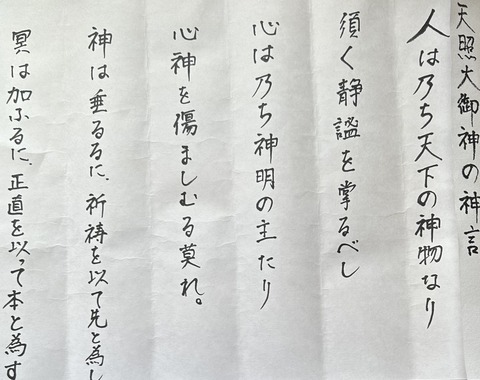 天照大御神の神言
人は乃ち天下の神物なり
須く静謐を掌るべし
心は乃ち神明の主たり
心神を傷ましむる莫れ。
神は垂るるに、祈祷を以て先と為し
冥は加ふるに、正直を以って本と為す